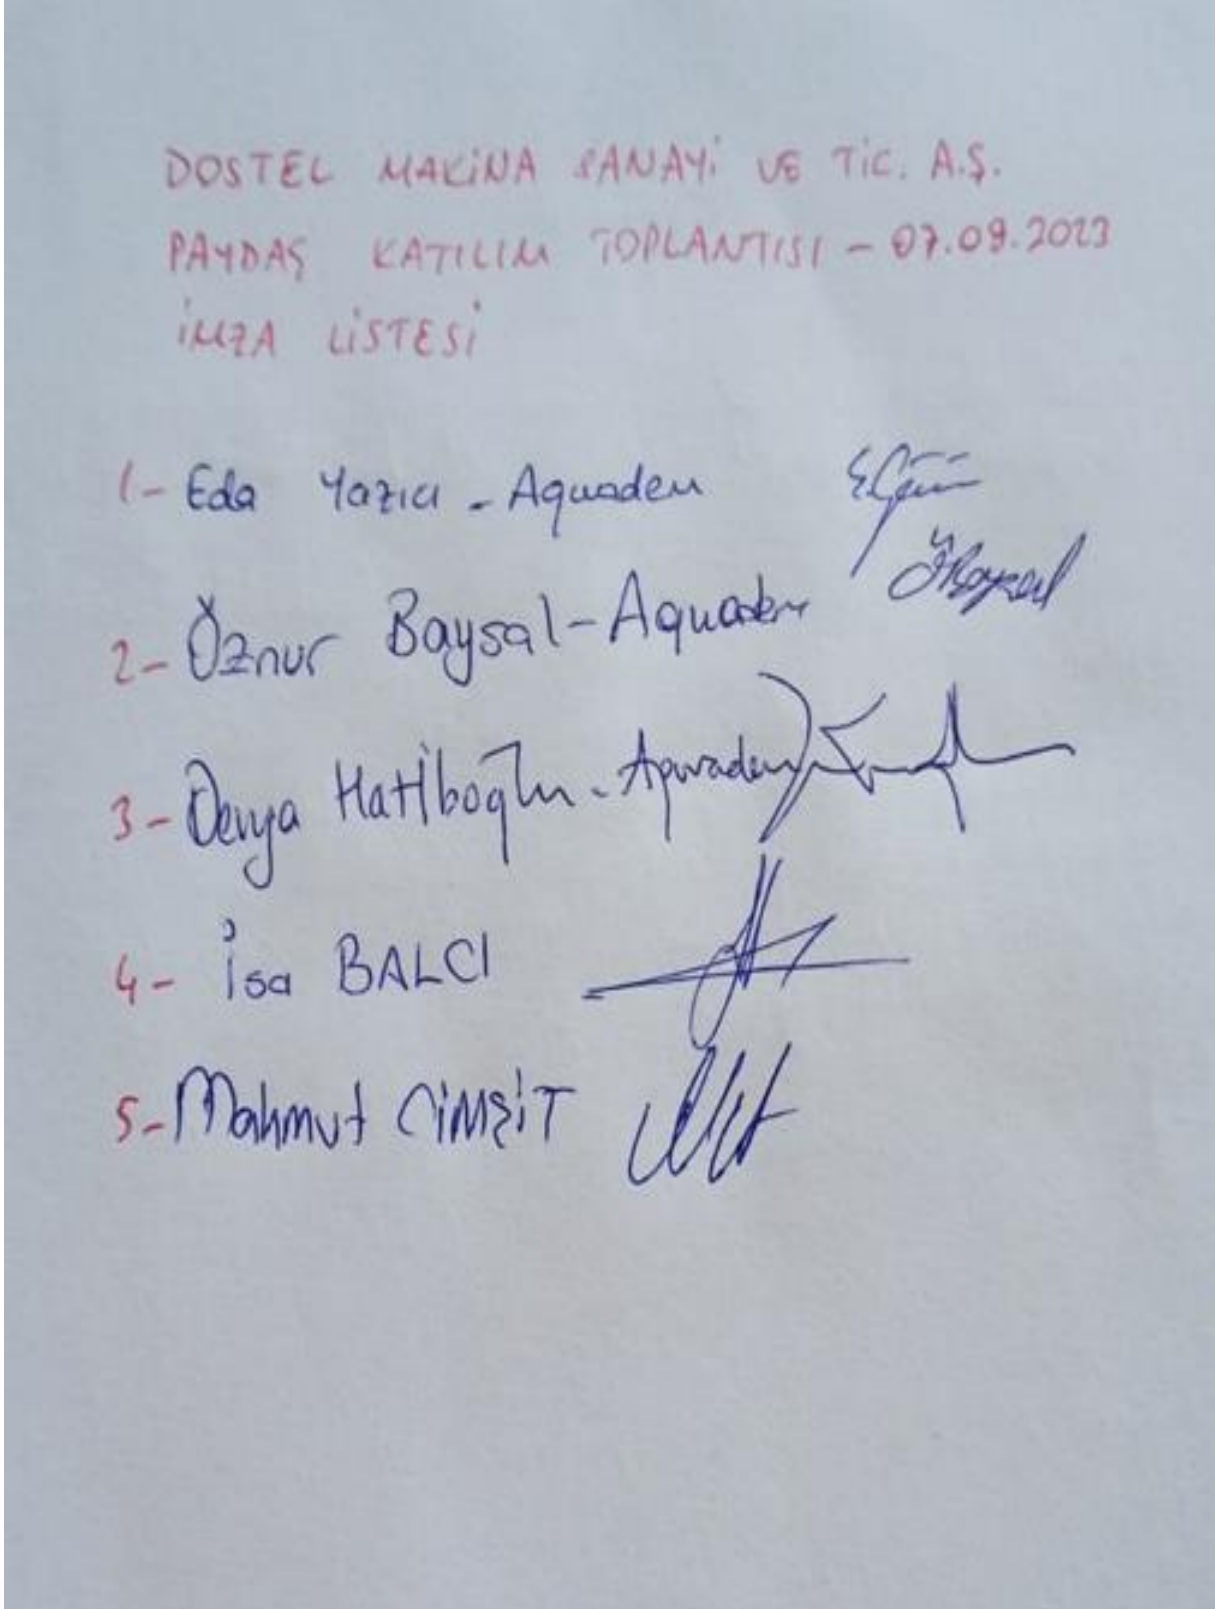 DOSTEL MAKİNA SANAYİ VE TİC. A.Ş.
PAYDAŞ KATILIM TOPLANTISI - 07.09.2023
İMZA LİSTESİ
1- Eda Yazıcı - Aquadem
2- Öznur Baysal - Aquadem
ÖBaysal
3- Derya Hatiboğlu - Aquadem
4- İsa BALCI
5- Mahmut CİMŞİT